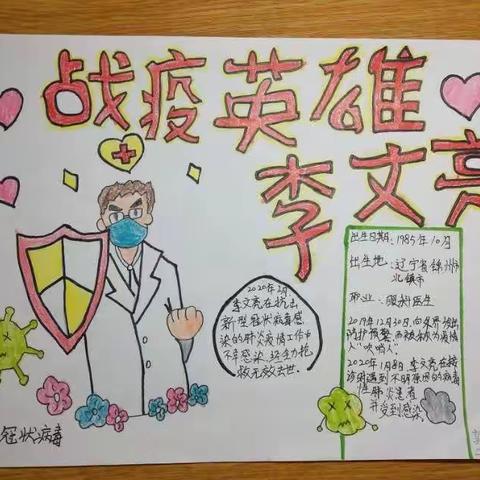 战疫英雄
李文亮
2020年2月
李文亮在抗击
新型冠状病毒感
染的肺炎疫情工作中
不幸感染,经全力抢
救无效去世.
出生日期:1985年10月
出生地:辽宁省锦州市
北镇市
职业:眼科医生
2019年12月30日,向外界发出
防护预警,而被称为疫情
"吹哨人"
2020年1月8日,李文亮在接
诊时遇到不明原因的病毒
性肺炎患者
并受到感染.
冠状病毒